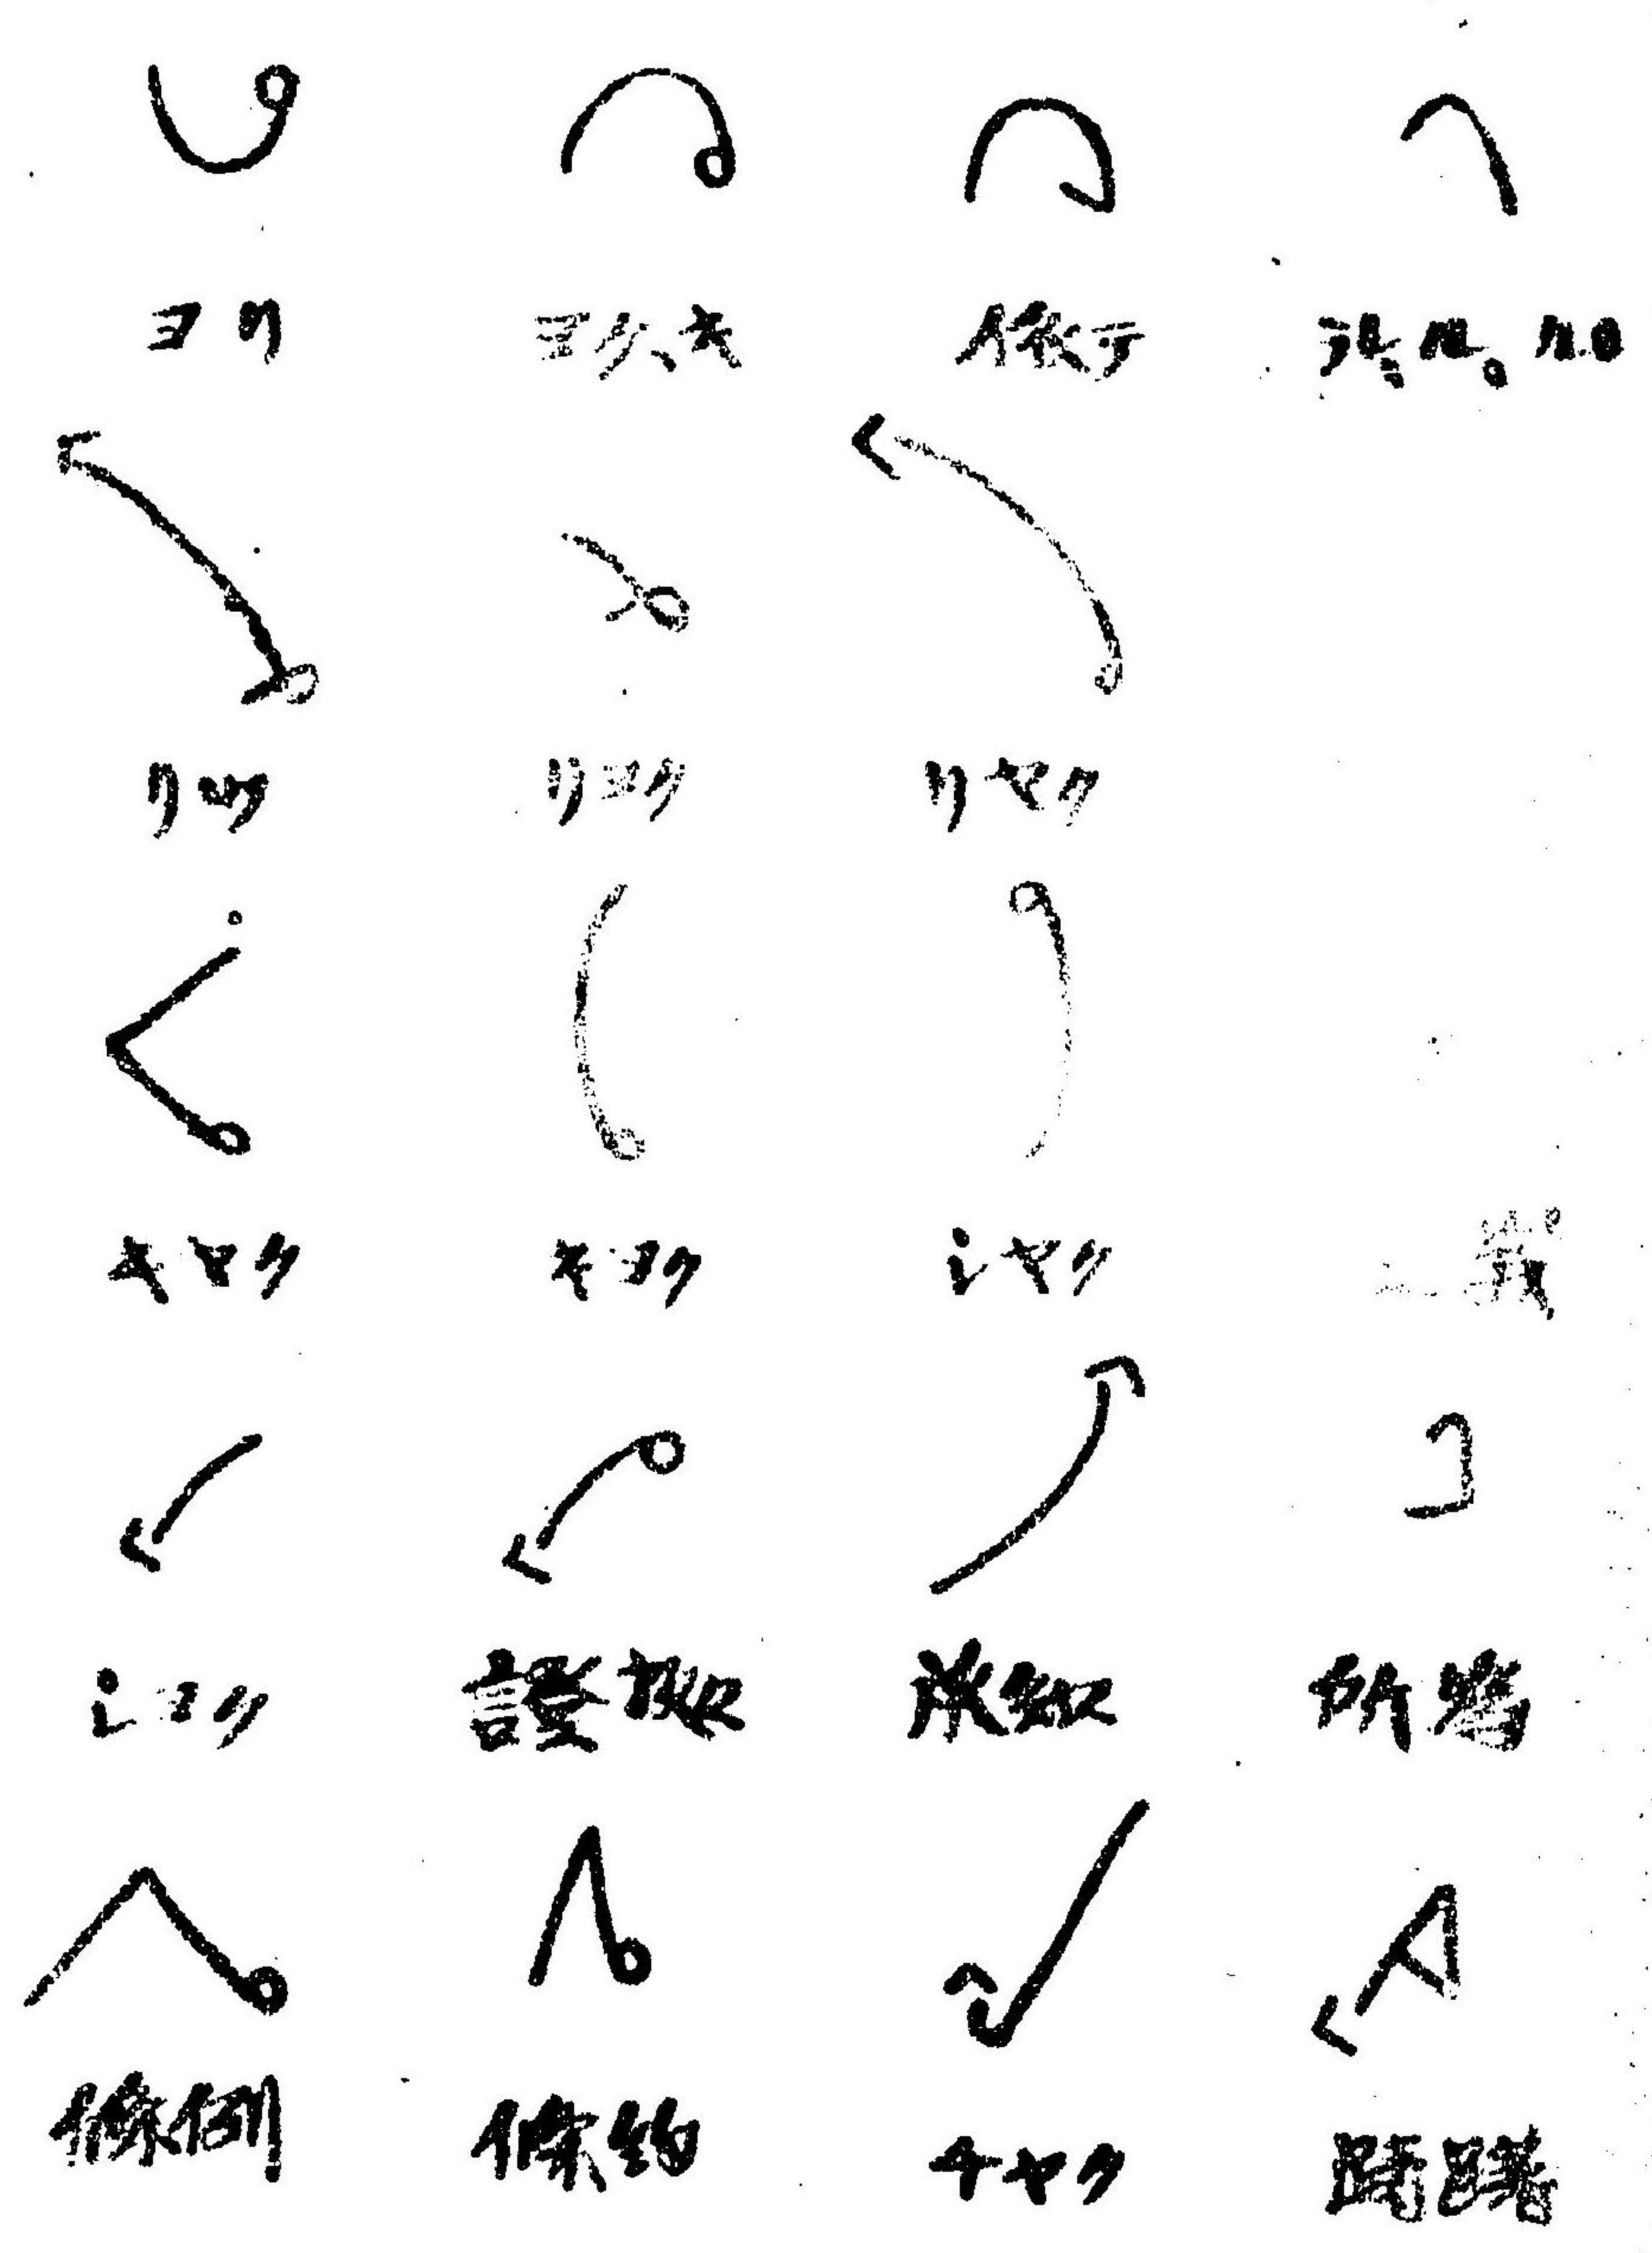 ヨリ ヨク、キ 依テ
リヨク リヤク
キヤク キヨク シヤク
シヨク 證拠 承知 所嵜
條例 條約 チヤク 躊躇